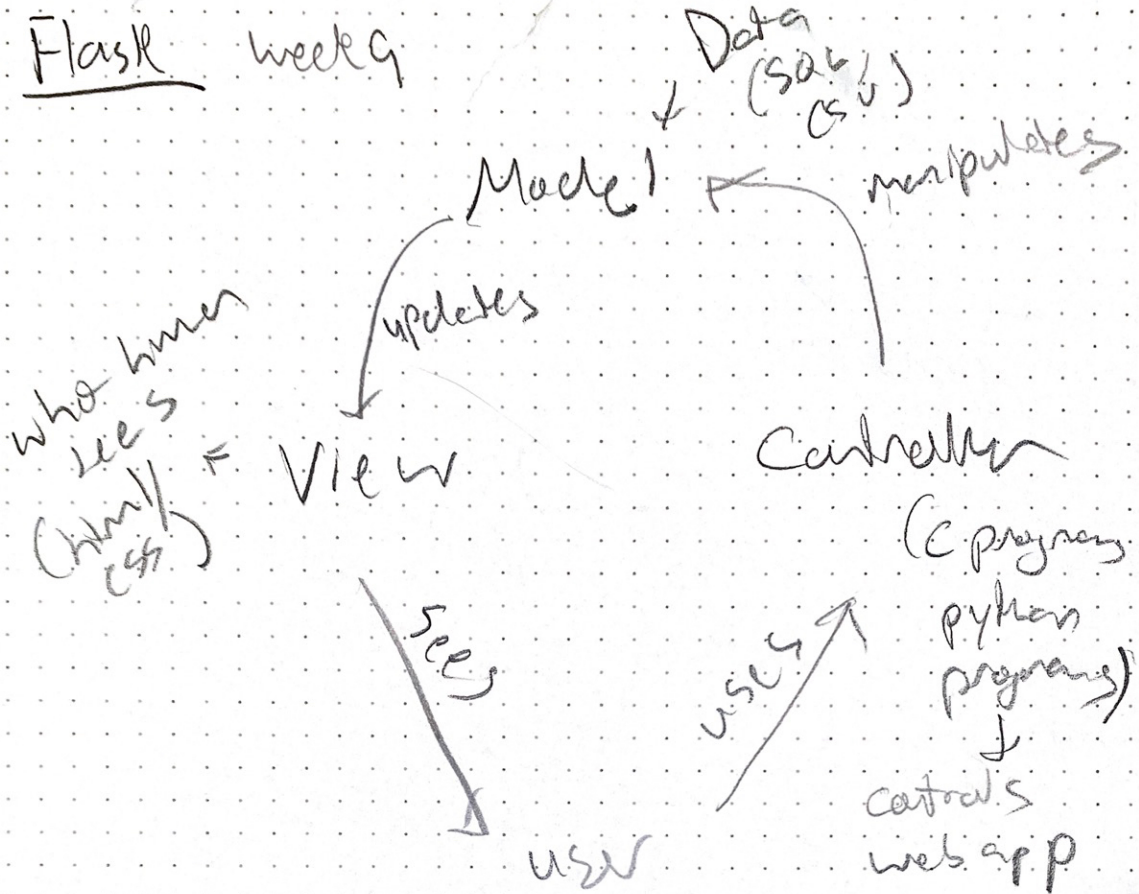 Flask week 9
Data
(SQL,
CSV)
↓
Model
manipulates
updates
who human
sees
(html/
css)
= View
Controller
(C program
python
programs)
↓
controls
web app
sees
uses
user